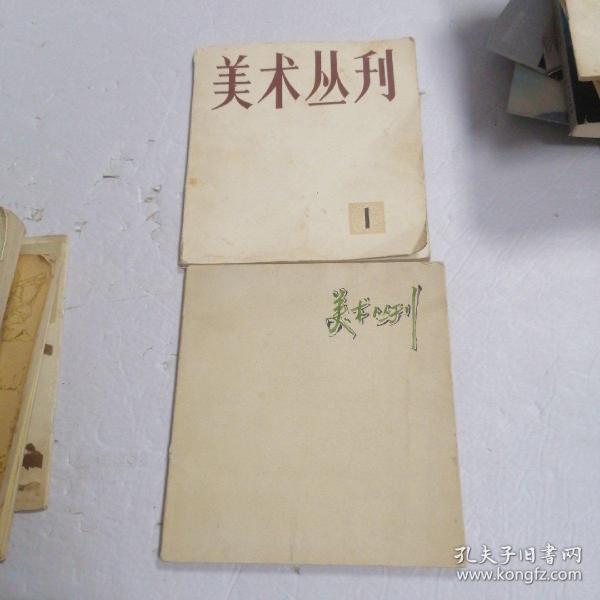 美术丛刊
1
美术丛刊
孔夫子旧書网
www.kongfz.com